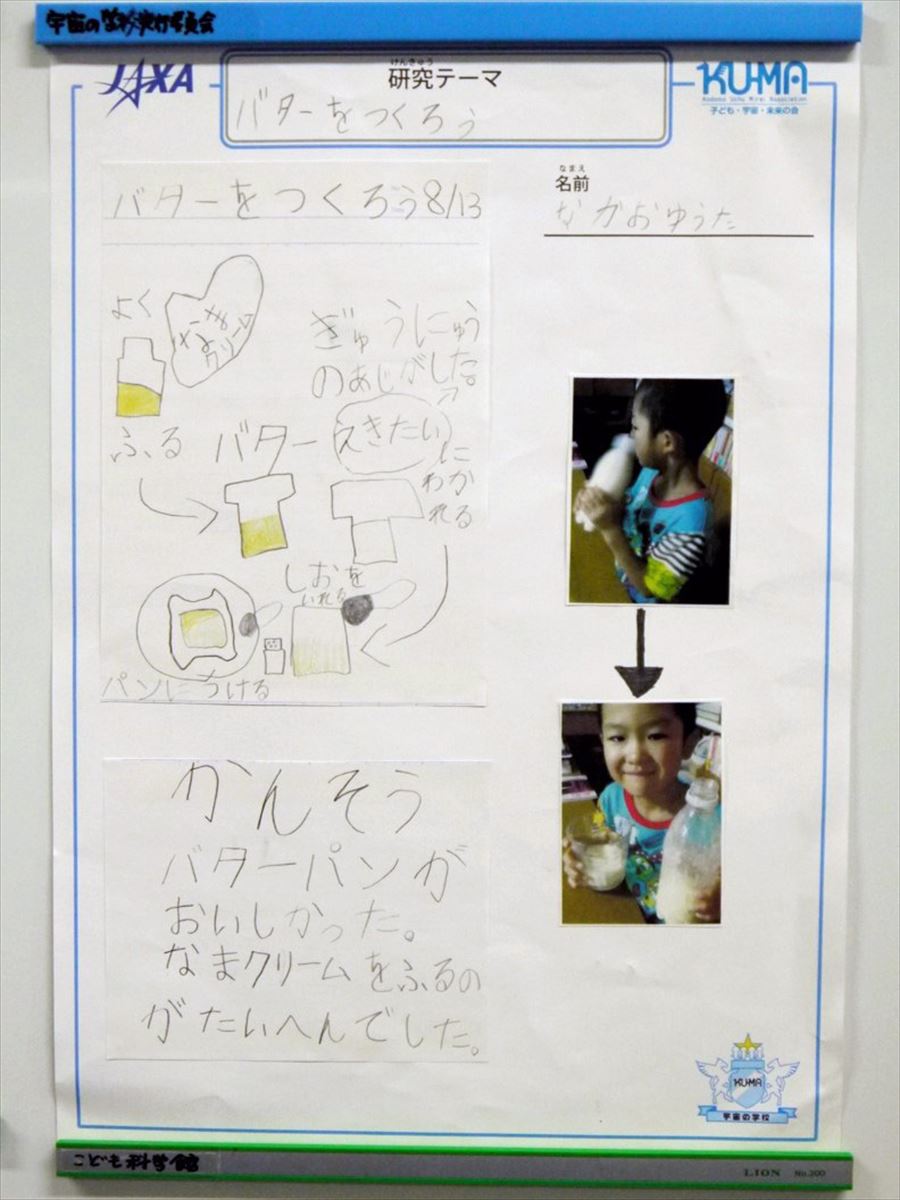 宇宙の学校実行委員会
JAXA
けんきゅう
研究テーマ
バターをつくろう
KU-MA
Kodomo Uchu Mirai Association
子ども・宇宙・未来の会
なまえ
名前
ながおゆうた
バターをつくろう8/13
よく
クリーム
ふる
ぎゅうにゅう
のあじがした。
バター
えきたい
に
わか
れる
しおを
いれる
パンにつける
かんそう
バターパンが
おいしかった。
なまクリームをふるの
がたいへんでした。
KU-MA
宇宙の学校
こども科学館
LION No.300